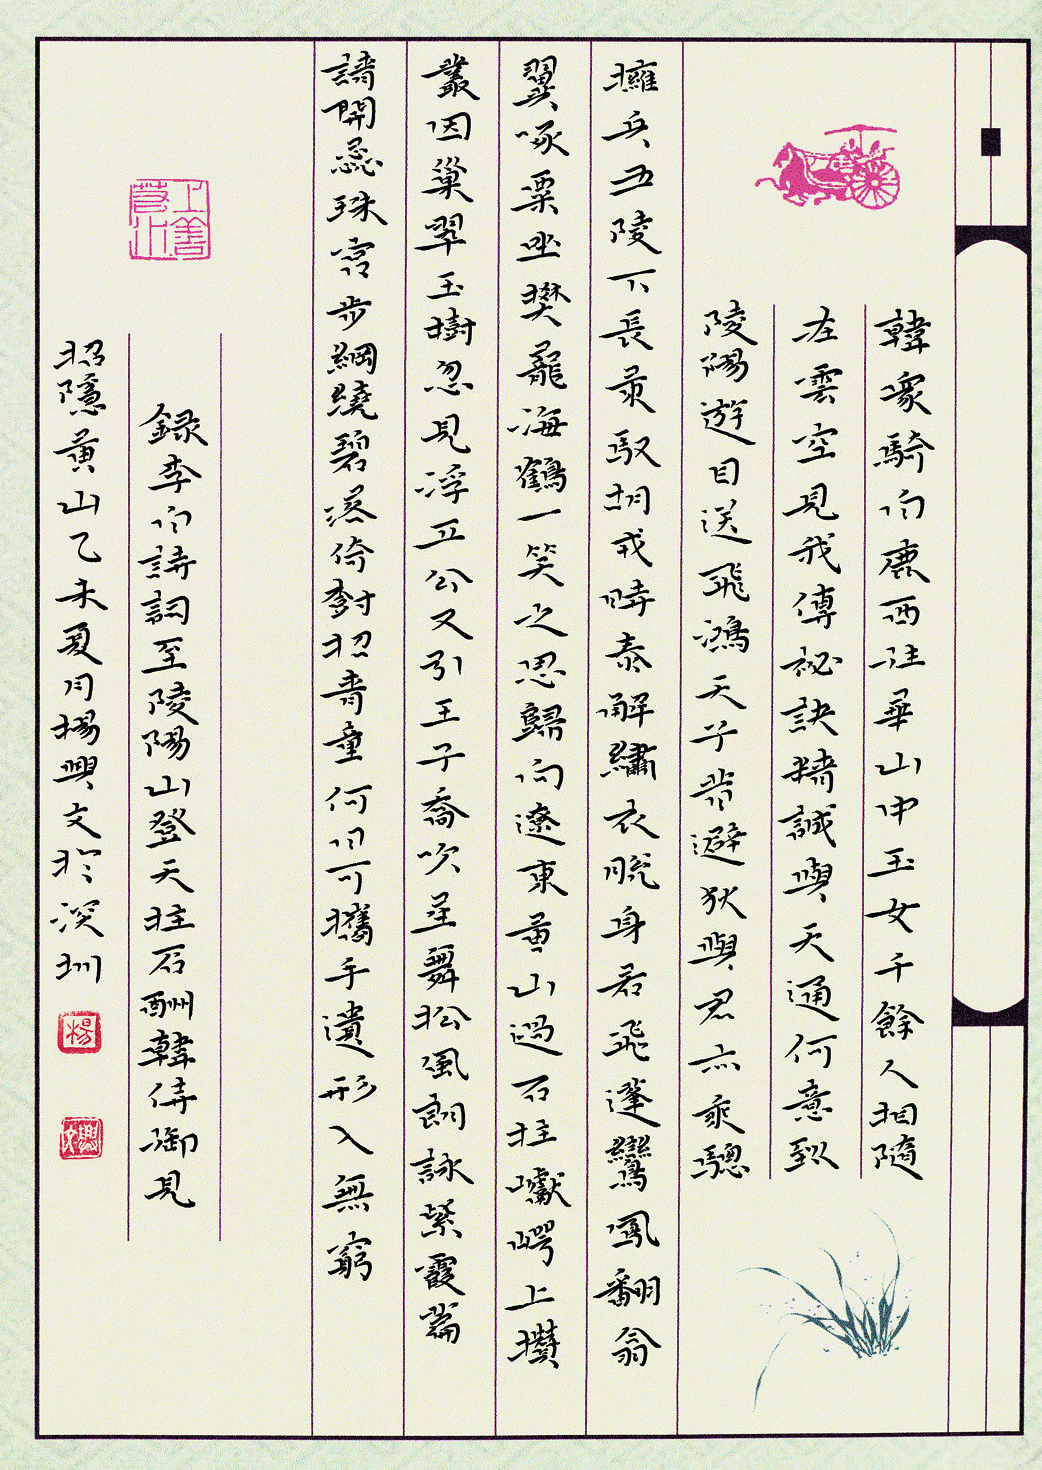 韓衆騎白鹿西往華山中玉女千餘人相隨
在雲空見我傳祕訣精誠與天通何意到
陵陽遊目送飛鴻天子昔避狄與君亦乘驄
擁兵五陵下長策馭胡戎時泰解繡衣脫身若飛蓬鸞鳳翻翕
翼啄粟坐樊籠海鶴一笑之思歸向遼東黃山過石柱巘崿上攢
叢因巢翠玉樹忽見浮丘公又引王子喬吹笙舞松風朗詠紫霞篇
請開蕊珠宮步綱繞碧落倚樹招青童何日可攜手遺形入無窮
上善若水
錄李白詩詞至陵陽山登天柱石酬韓侍御見
招隱黃山乙未夏月楊興文於深圳
楊
興文